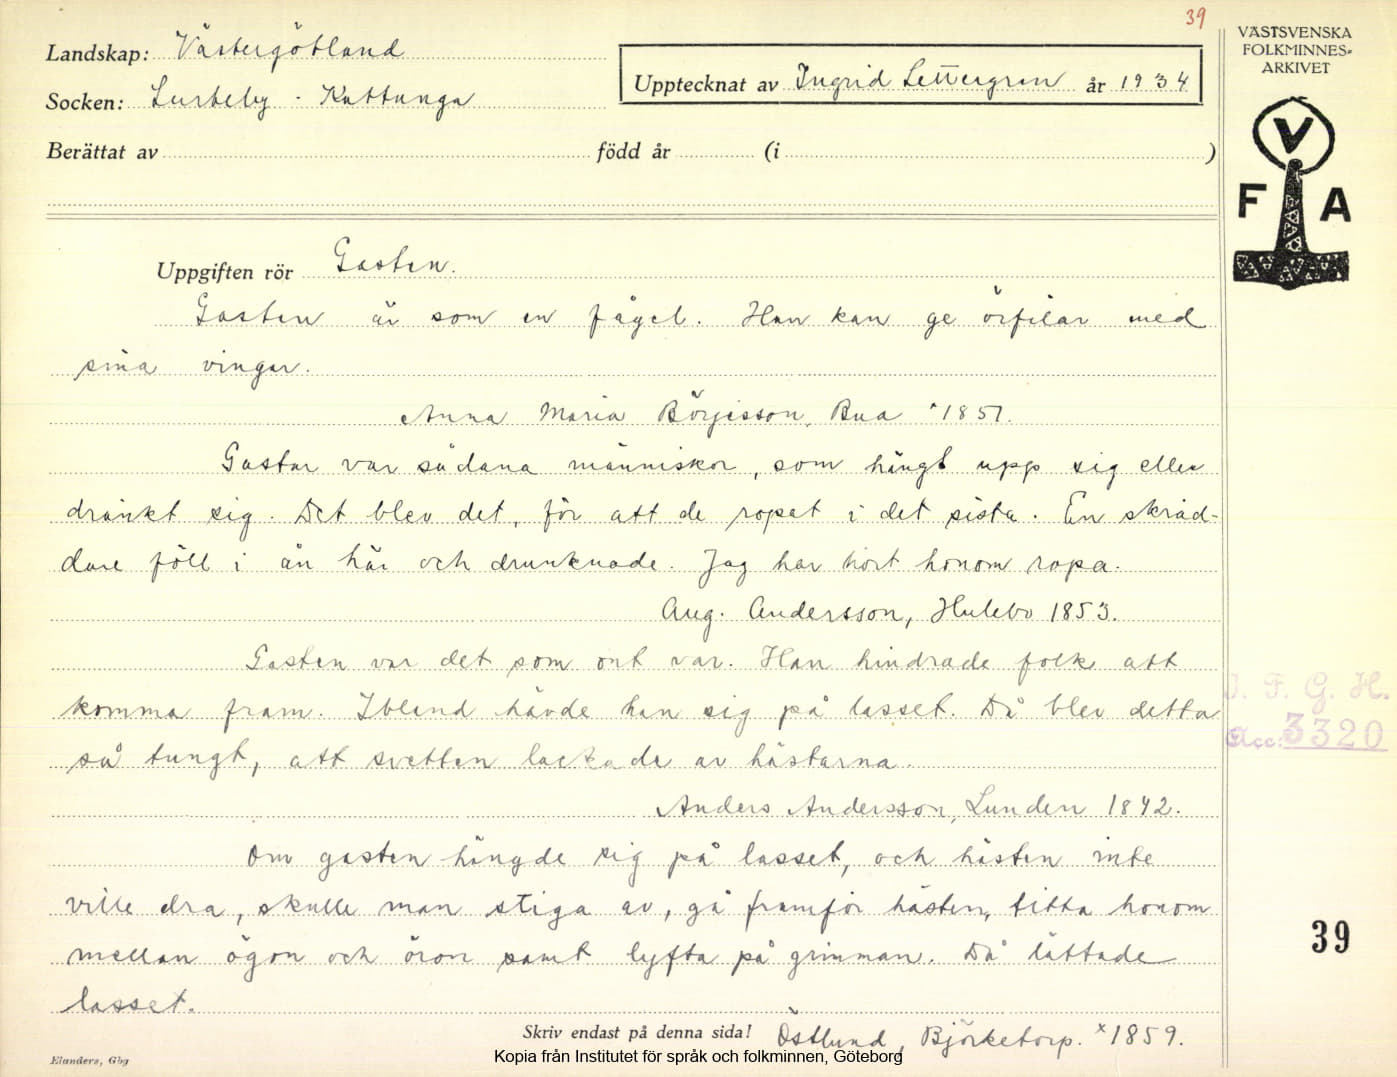 39
Landskap: Västergötland
Socken: Surteby - Kattunga
Upptecknat av Ingrid Settergren år 1934
Berättat av född år (i )
VÄSTSVENSKA
FOLKMINNES-
ARKIVET
V
F A
Uppgiften rör Gasten.
Gasten är som en fågel. Han kan ge örfilar med
sina vingar.
Anna Maria Börjesson, Bua *1857.
Gastar var sådana människor, som hängt upp sig eller
dränkt sig. Det blev det, för att de ropat i det sista. En skräd-
dare föll i ån här och drunknade. Jag har hört honom ropa.
Aug. Andersson, Hulebo 1853.
Gasten var det som ont var. Han hindrade folk att
komma fram. Ibland hävde han sig på lasset. Då blev detta
så tungt, att svetten lackade av hästarna.
Anders Andersson, Lunden 1842.
Om gasten hängde sig på lasset, och hästen inte
ville dra, skulle man stiga av, gå framför hästen, titta honom
mellan ögon och öron samt lyfta på grimman. Då lättade
lasset.
Östlund, Björketorp. x1859.
I. F. G. H.
Acc: 3320
39
Skriv endast på denna sida!
Kopia från Institutet för språk och folkminnen, Göteborg
Elanders, Gbg